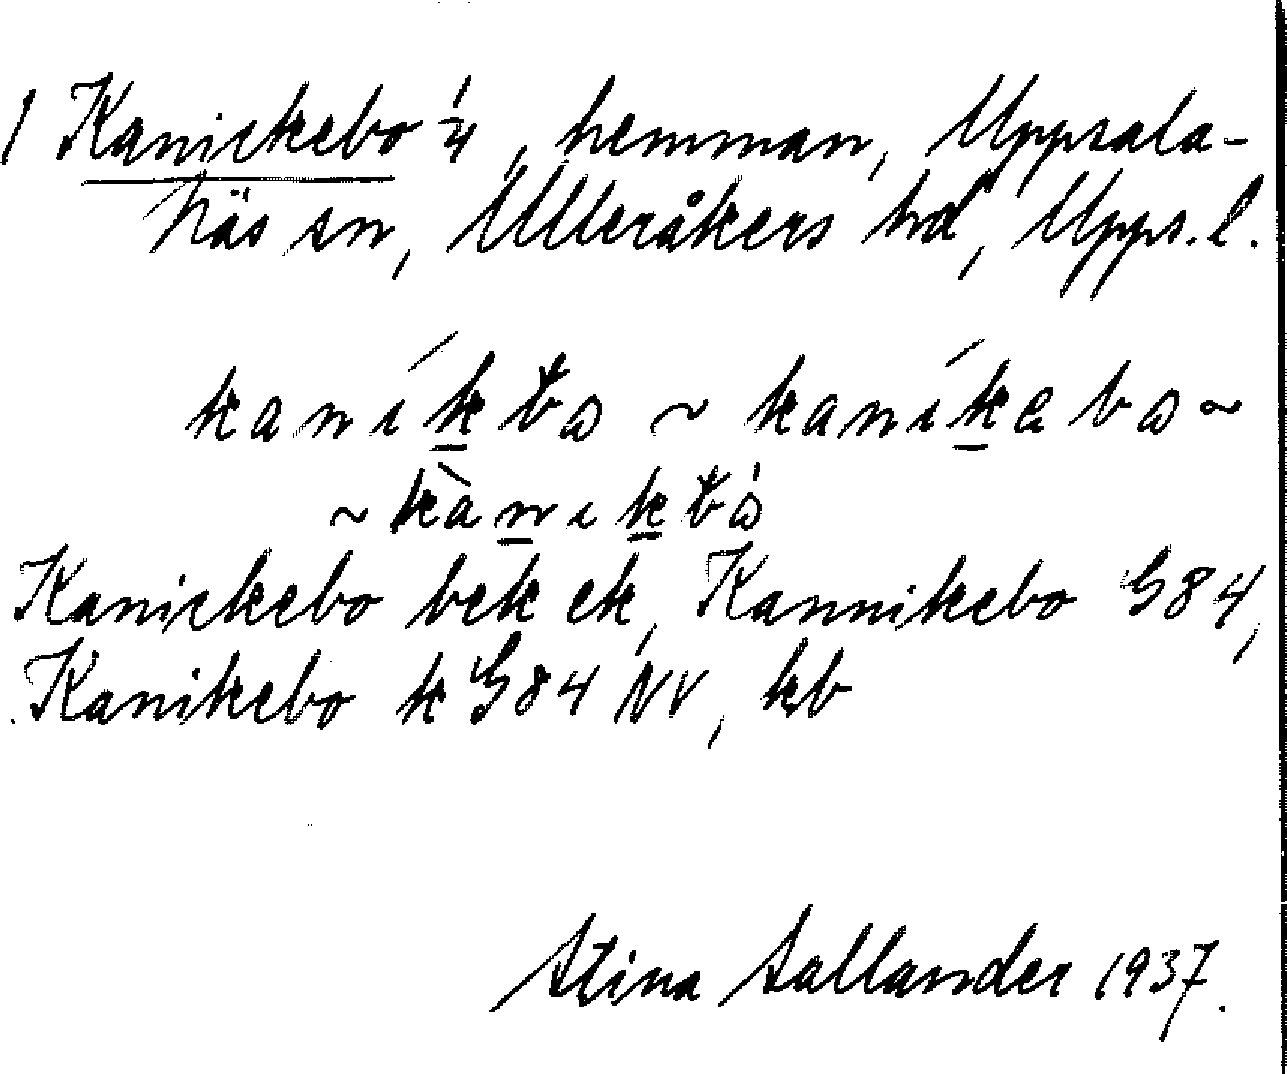 1 Kanickebo 1/4, hemman, Uppsala-
Näs sn, Ulleråkers hd, Upps. l.
kaníkbo ~ kaníkebo ~
~ kànikbó
Kanickebo bek ek, Kannikebo G84,
Kanikebo k G84 NV, kb
Stina Sallander 1937.